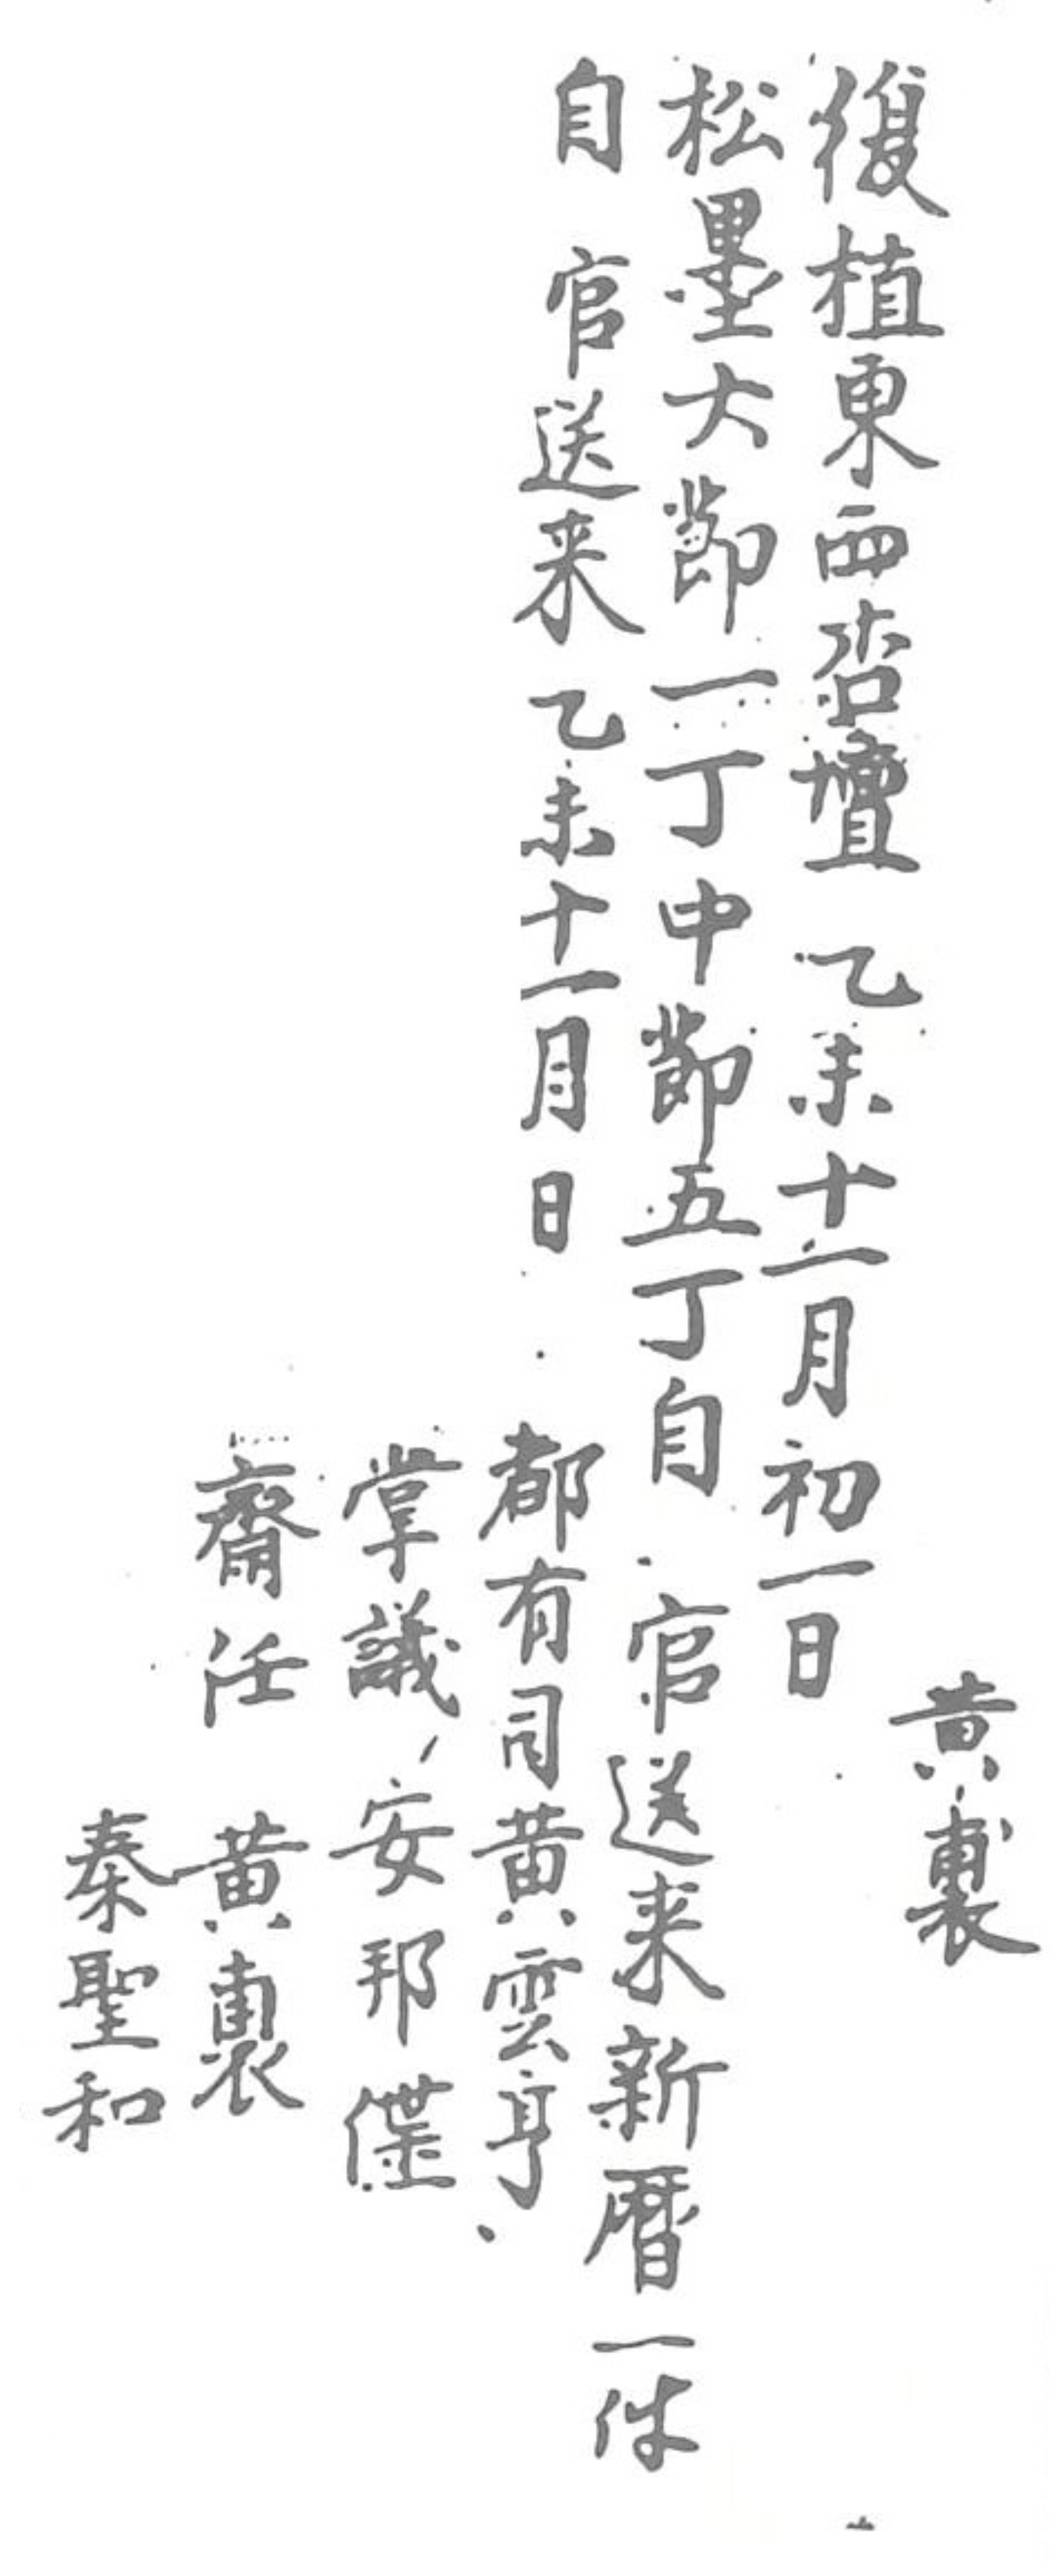 黄裏
復植東西杏壇 乙未十一月初一日
松墨大莭一丁中莭五丁自 官送来新暦一件
自 官送来 乙未十一月日
都有司黄雲亨
掌議 安邦傑
齋任 黄裏
秦聖和